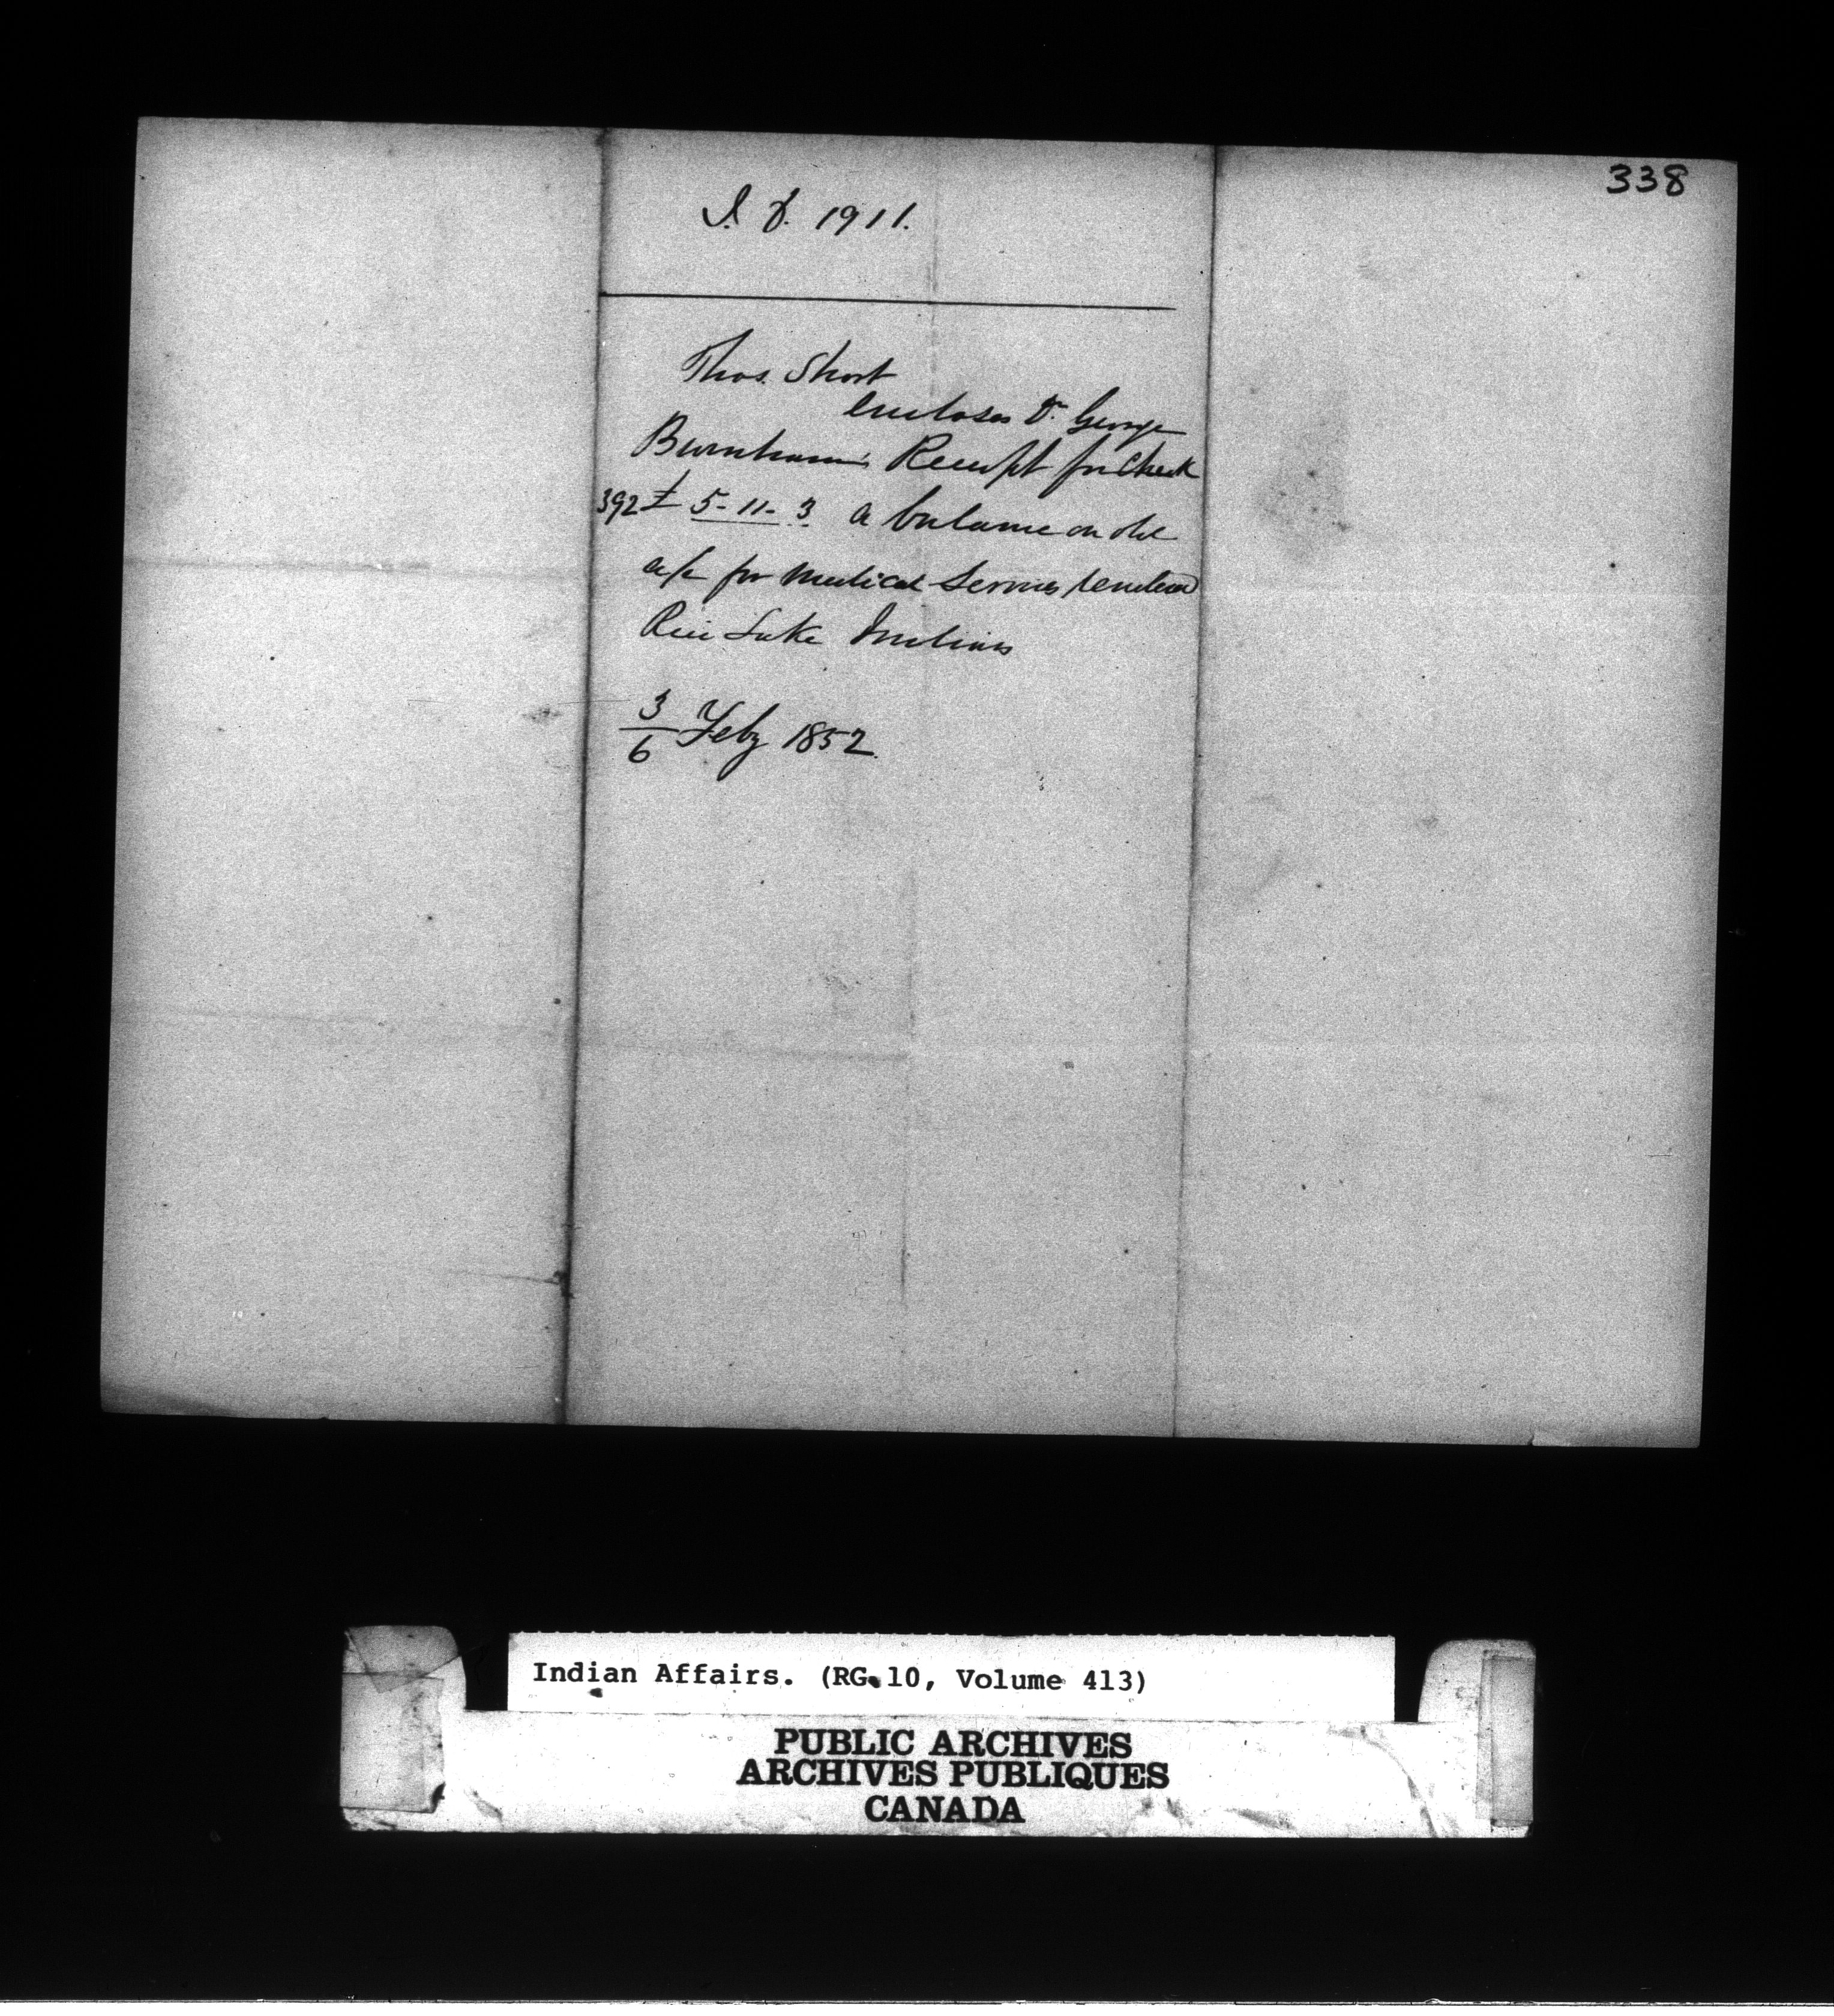 338
I.D. 1911.
Thos. Short
encloses Dr. George
Burnham's Receipt for Check
392 £ 5-11-3 a balance on old
a/c for Medical Services rendered
Rice Lake Indians
3/6 Feby 1852.
Indian Affairs. (RG 10, Volume 413)
PUBLIC ARCHIVES
ARCHIVES PUBLIQUES
CANADA